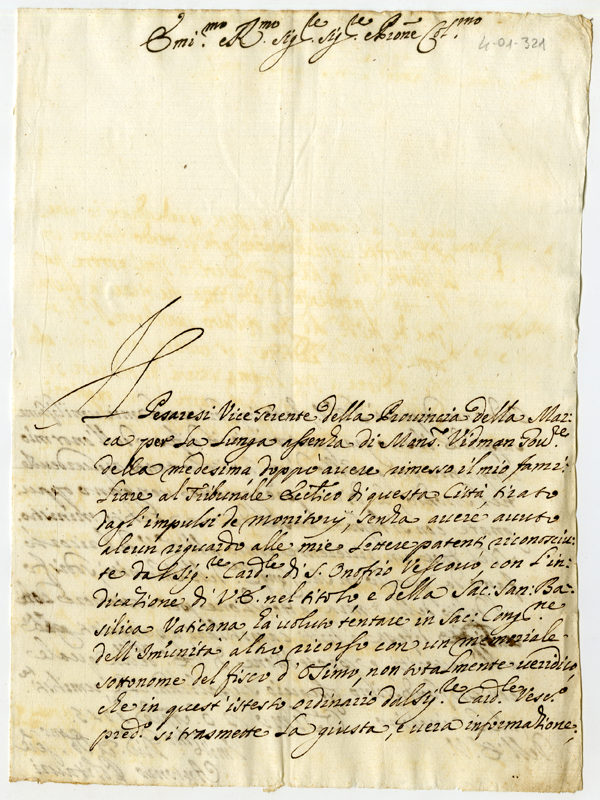 Emi.mo e R.mo Sig.re Sig.re e Prone Col.mo
4-01-321
Il Pesaresi Vice Gerente della Provincia della Mar:
ca per la lunga assenza di Mons.r Vidman Gou.re
della medesima, doppo auere rimesso il mio fami:
liare al Tribunale Eccl.ico di questa Città, tirato
dagl'impulsi de monitorij, senza auere auuto
alcun riguardo alle mie Lettere patenti riconosciu:
te dal Sig.re Card.le di S. Onofrio Vescouo, con l'in:
dicazione di V.E. nel titolo e della Sac: San: Ba:
silica Vaticana, hà voluto tentare in Sac: Cong.ne
dell'Imunità altro ricorso con un memoriale
sottonome del fisco d'Osimo, non totalmente ueridico,
che in quest'istesto ordinario dal Sig.re Card.le Vesc.o
pred.o si trasmette la giusta, e uera informazione,